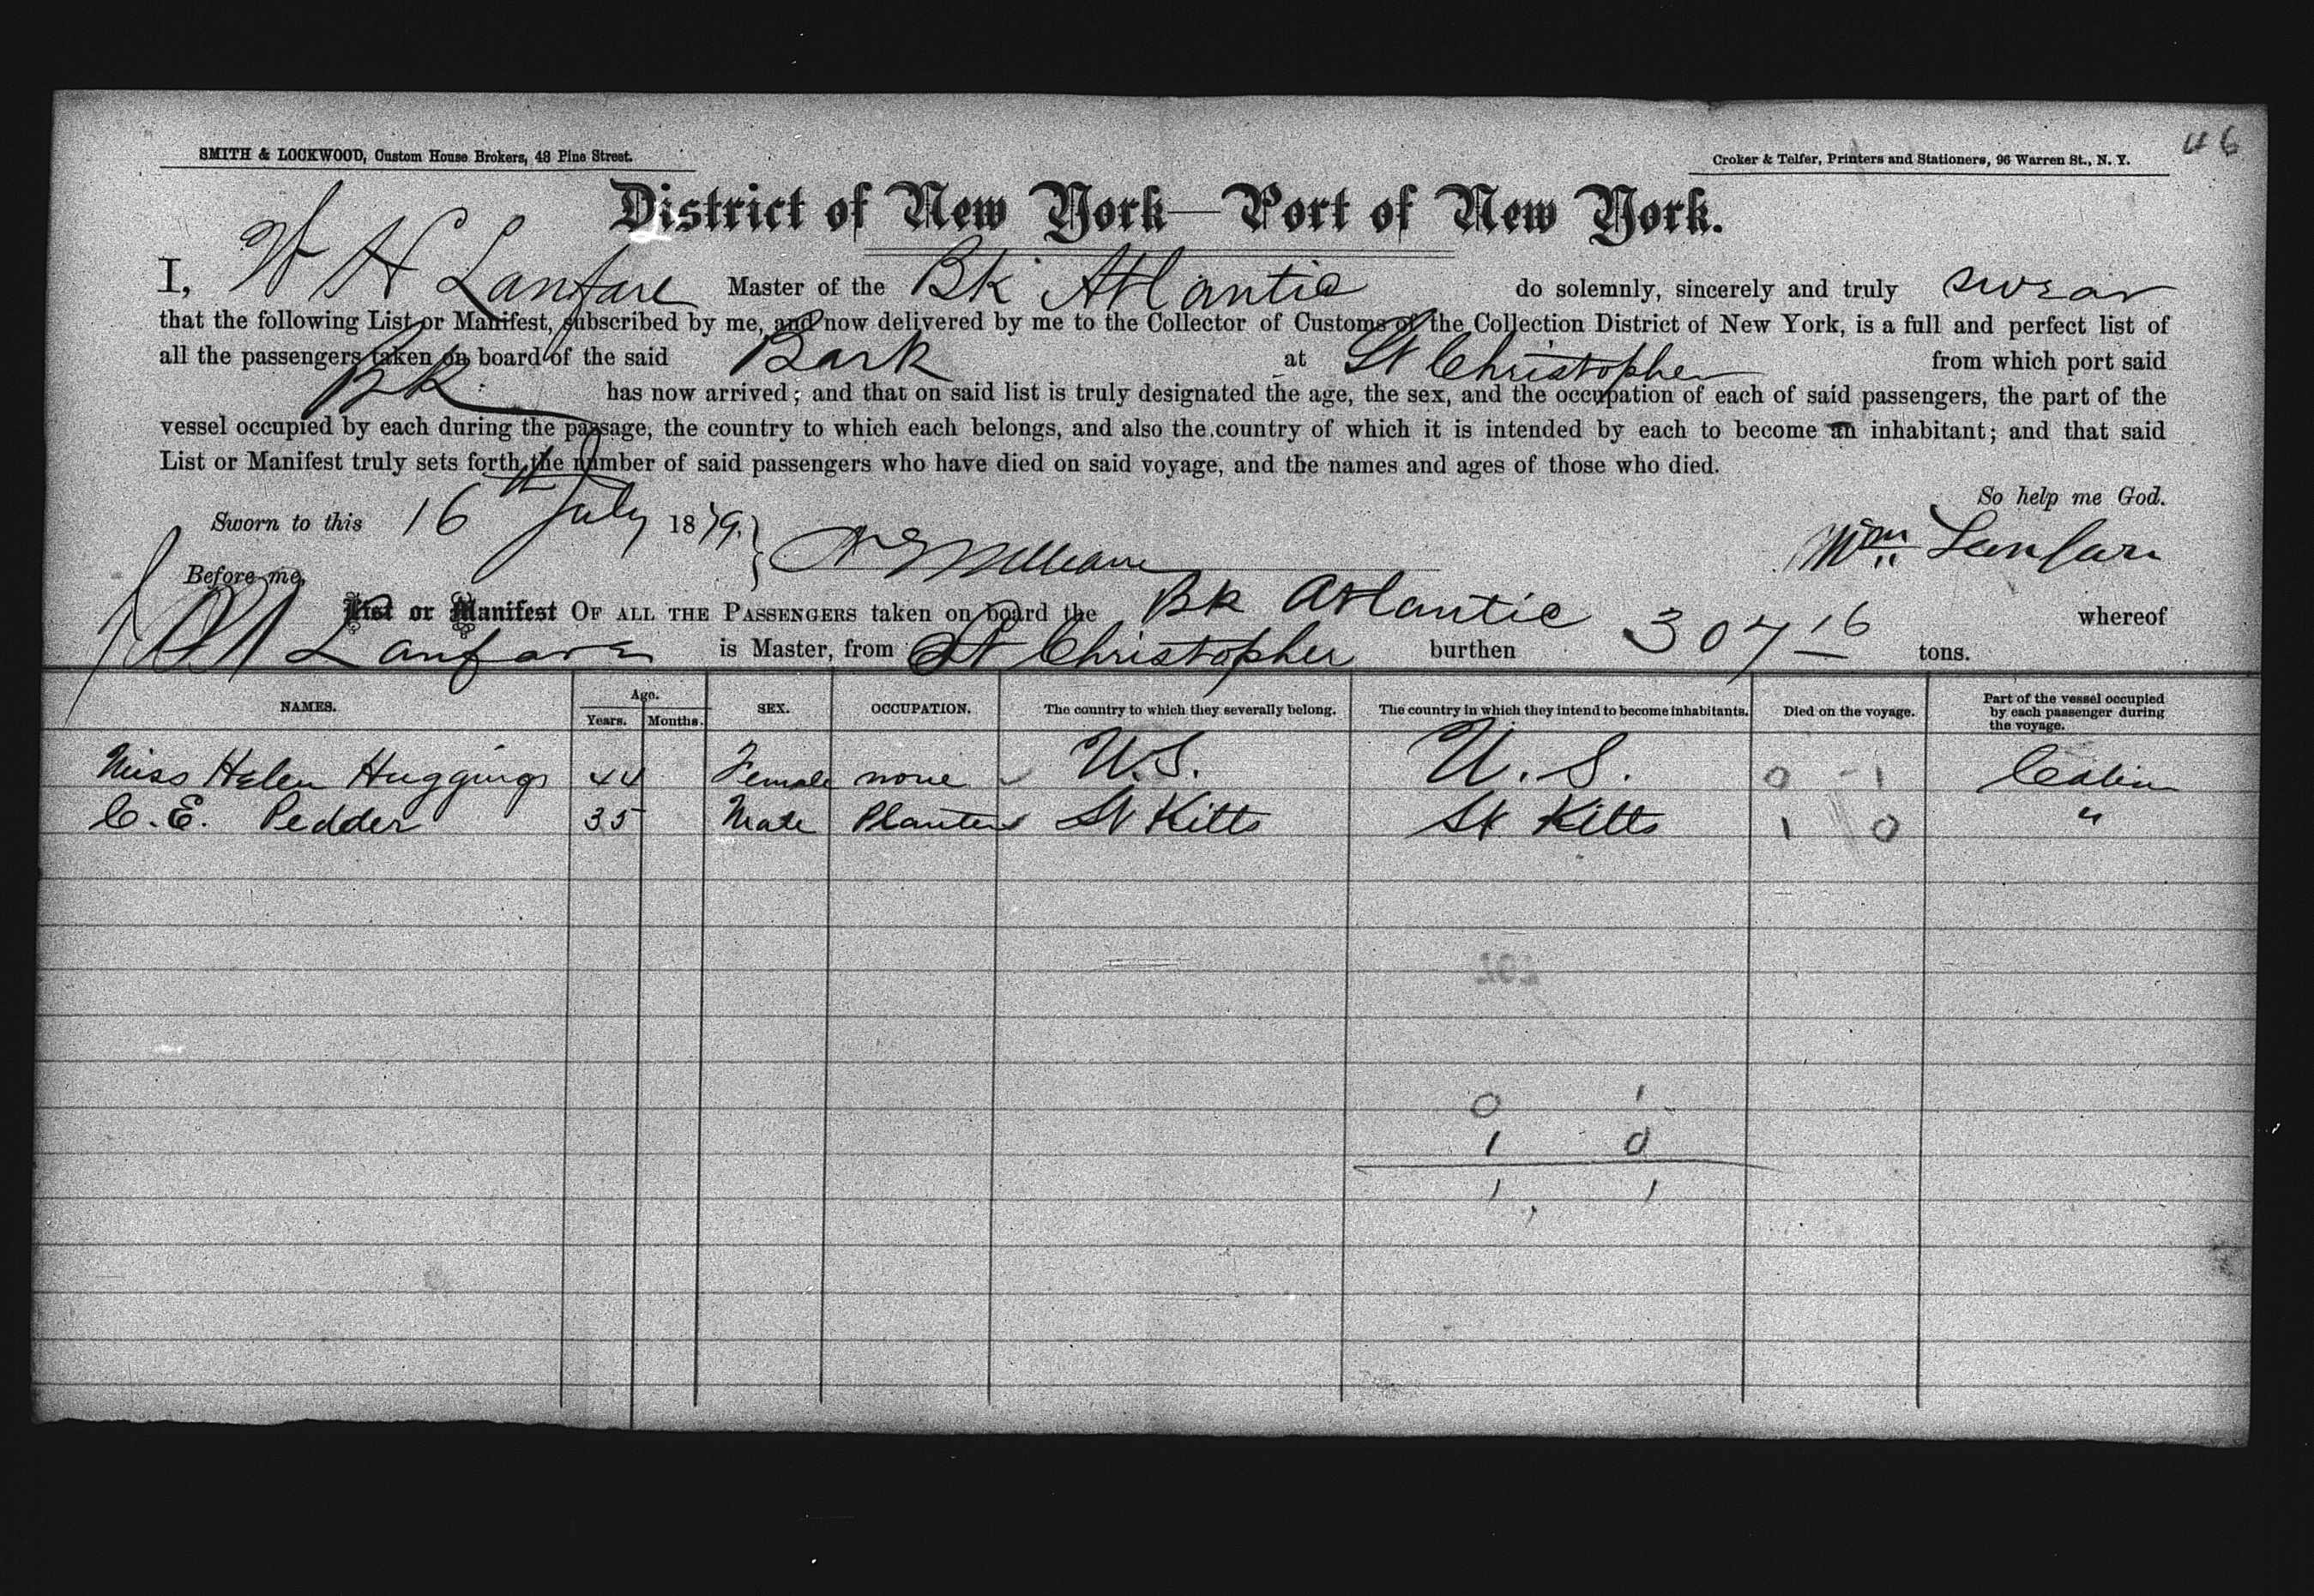 46
SMITH & LOCKWOOD, Custom House Brokers, 48 Pine Street.
Croker & Telfer, Printers and Stationers, 96 Warren St., N. Y.
District of New York—Port of New York.
I, W H Lanfare Master of the Bk Atlantic do solemnly, sincerely and truly swear
that the following List or Manifest, subscribed by me, and now delivered by me to the Collector of Customs of the Collection District of New York, is a full and perfect list of
all the passengers taken on board of the said Bark at St Christopher from which port said
Bk has now arrived; and that on said list is truly designated the age, the sex, and the occupation of each of said passengers, the part of the
vessel occupied by each during the passage, the country to which each belongs, and also the country of which it is intended by each to become an inhabitant; and that said
List or Manifest truly sets forth the number of said passengers who have died on said voyage, and the names and ages of those who died.
So help me God.
Sworn to this 16th July 1879.
Wm Lanfare
Before me,
List or Manifest OF ALL THE PASSENGERS taken on board the Bk Atlantic whereof
Lanfare is Master, from St Christopher burthen 307 16 tons.
NAMES. Age. Years. Months. SEX. OCCUPATION. The country to which they severally belong. The country in which they intend to become inhabitants. Died on the voyage. Part of the vessel occupied by each passenger during the voyage.
Miss Helen Huggings 44 Female none U.S. U.S. 0 1 Cabin
C. E. Pedder 35 Male Planter St Kitts St Kitts 1 0 "
0 1
1 0
1 1